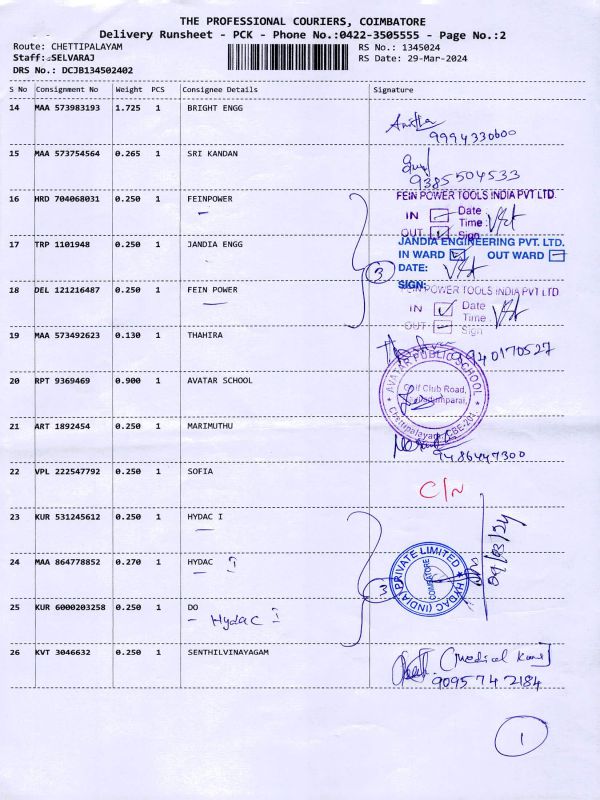 THE PROFESSIONAL COURIERS, COIMBATORE
Delivery Runsheet - PCK - Phone No.:0422-3505555 - Page No.:2
Route: CHETTIPALAYAM
Staff: SELVARAJ
DRS No.: DCJB134502402
RS No.: 1345024
RS Date: 29-Mar-2024
S No Consignment No Weight PCS Consignee Details Signature
14 MAA 573983193 1.725 1 BRIGHT ENGG
9994330600
15 MAA 573754564 0.265 1 SRI KANDAN
9385504533
16 HRD 704068031 0.250 1 FEINPOWER
FEIN POWER TOOLS INDIA PVT LTD.
IN Date
Time
OUT Sign
17 TRP 1101948 0.250 1 JANDIA ENGG
JANDIA ENGINEERING PVT. LTD.
IN WARD OUT WARD
DATE:
SIGN:
3
18 DEL 121216487 0.250 1 FEIN POWER
FEIN POWER TOOLS INDIA PVT LTD.
IN Date
Time
OUT Sign
19 MAA 573492623 0.130 1 THAHIRA
9940170527
20 RPT 9369469 0.900 1 AVATAR SCHOOL
AVATAR PUBLIC SCHOOL
Golf Club Road,
Chettipalayam, CBE-201.
21 ART 1892454 0.250 1 MARIMUTHU
9486447300
22 VPL 222547792 0.250 1 SOFIA
C/N
23 KUR 531245612 0.250 1 HYDAC I
24 MAA 864778852 0.270 1 HYDAC I
3
HYDAC (INDIA) PRIVATE LIMITED
COIMBATORE
29/03/24
25 KUR 6000203258 0.250 1 DO
- Hydac I
26 KVT 3046632 0.250 1 SENTHILVINAYAGAM
(Medical
9095742184
1